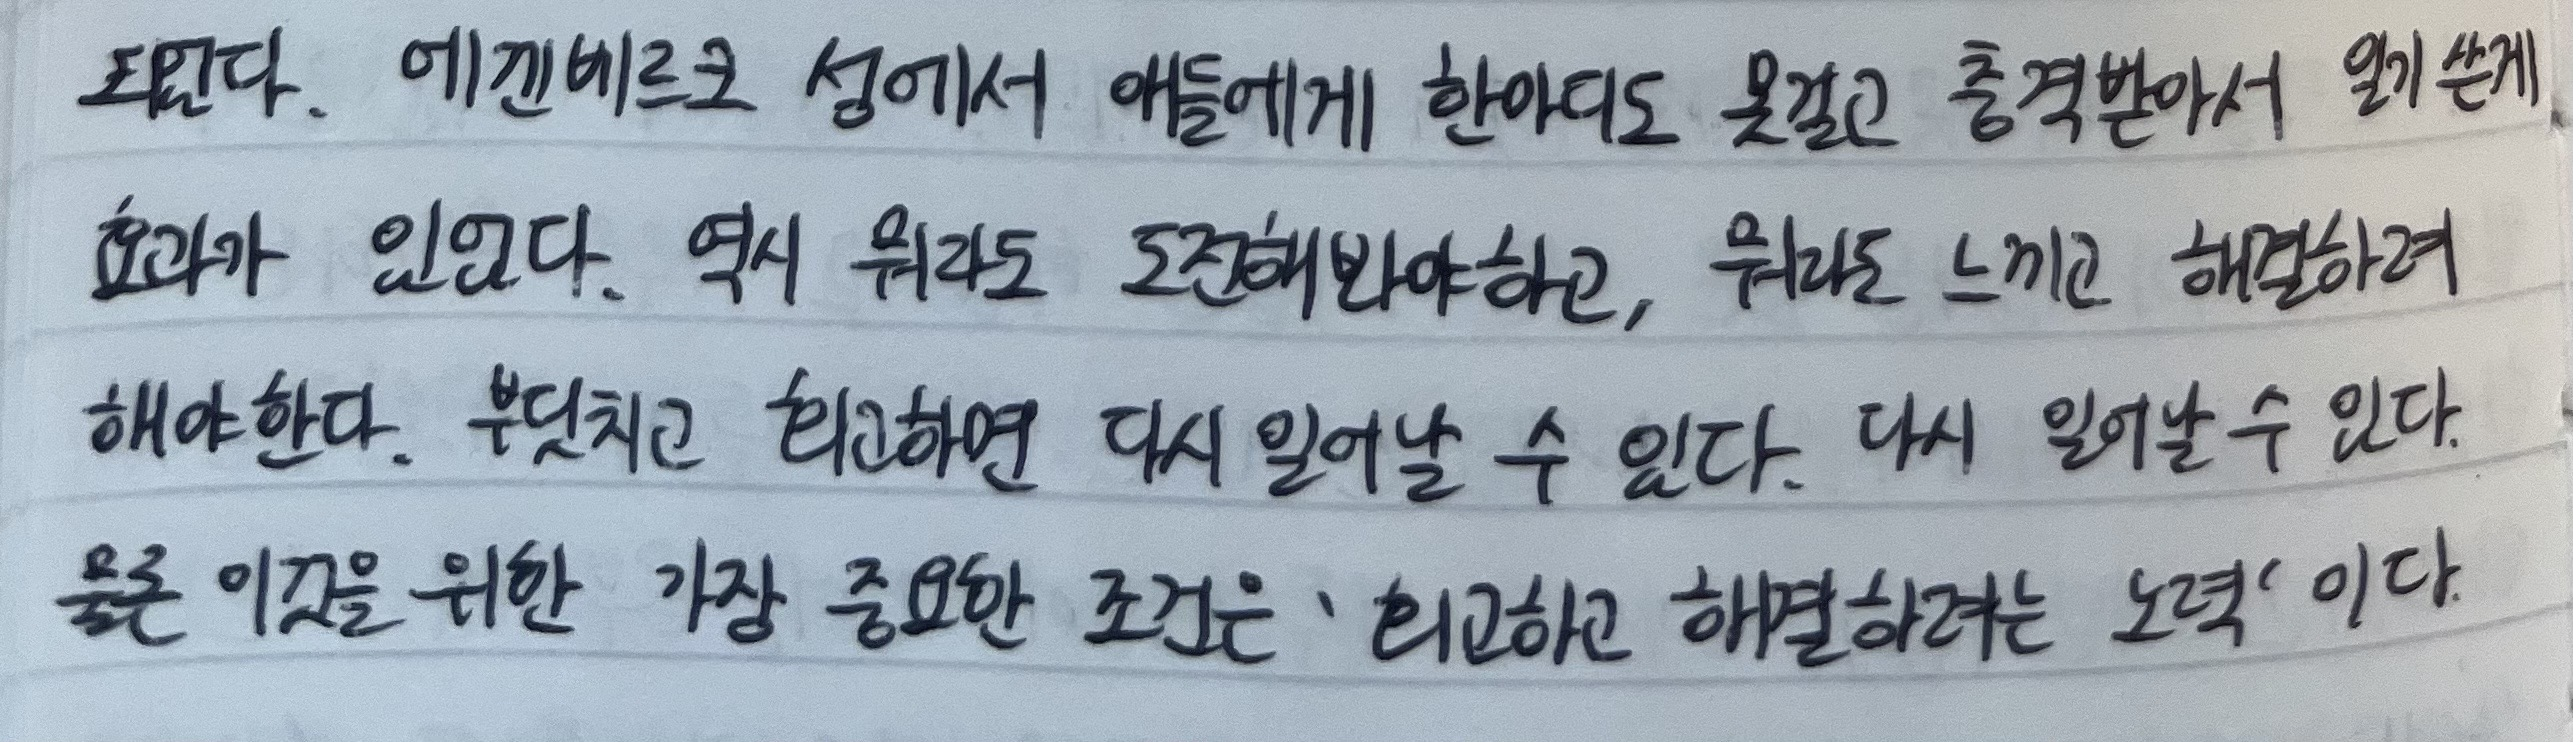 도왔다. 에겐베르크 성에서 애들에게 한마디도 못걸고 충격받아서 일기 쓴게
효과가 있었다. 역시 뭐라도 도전해봐야하고, 뭐라도 느끼고 해결하려
해야한다. 부딪치고 회고하면 다시 일어날 수 있다. 다시 일어날 수 있다.
물론 이것을 위한 가장 중요한 조건은 '회고하고 해결하려는 노력' 이다.